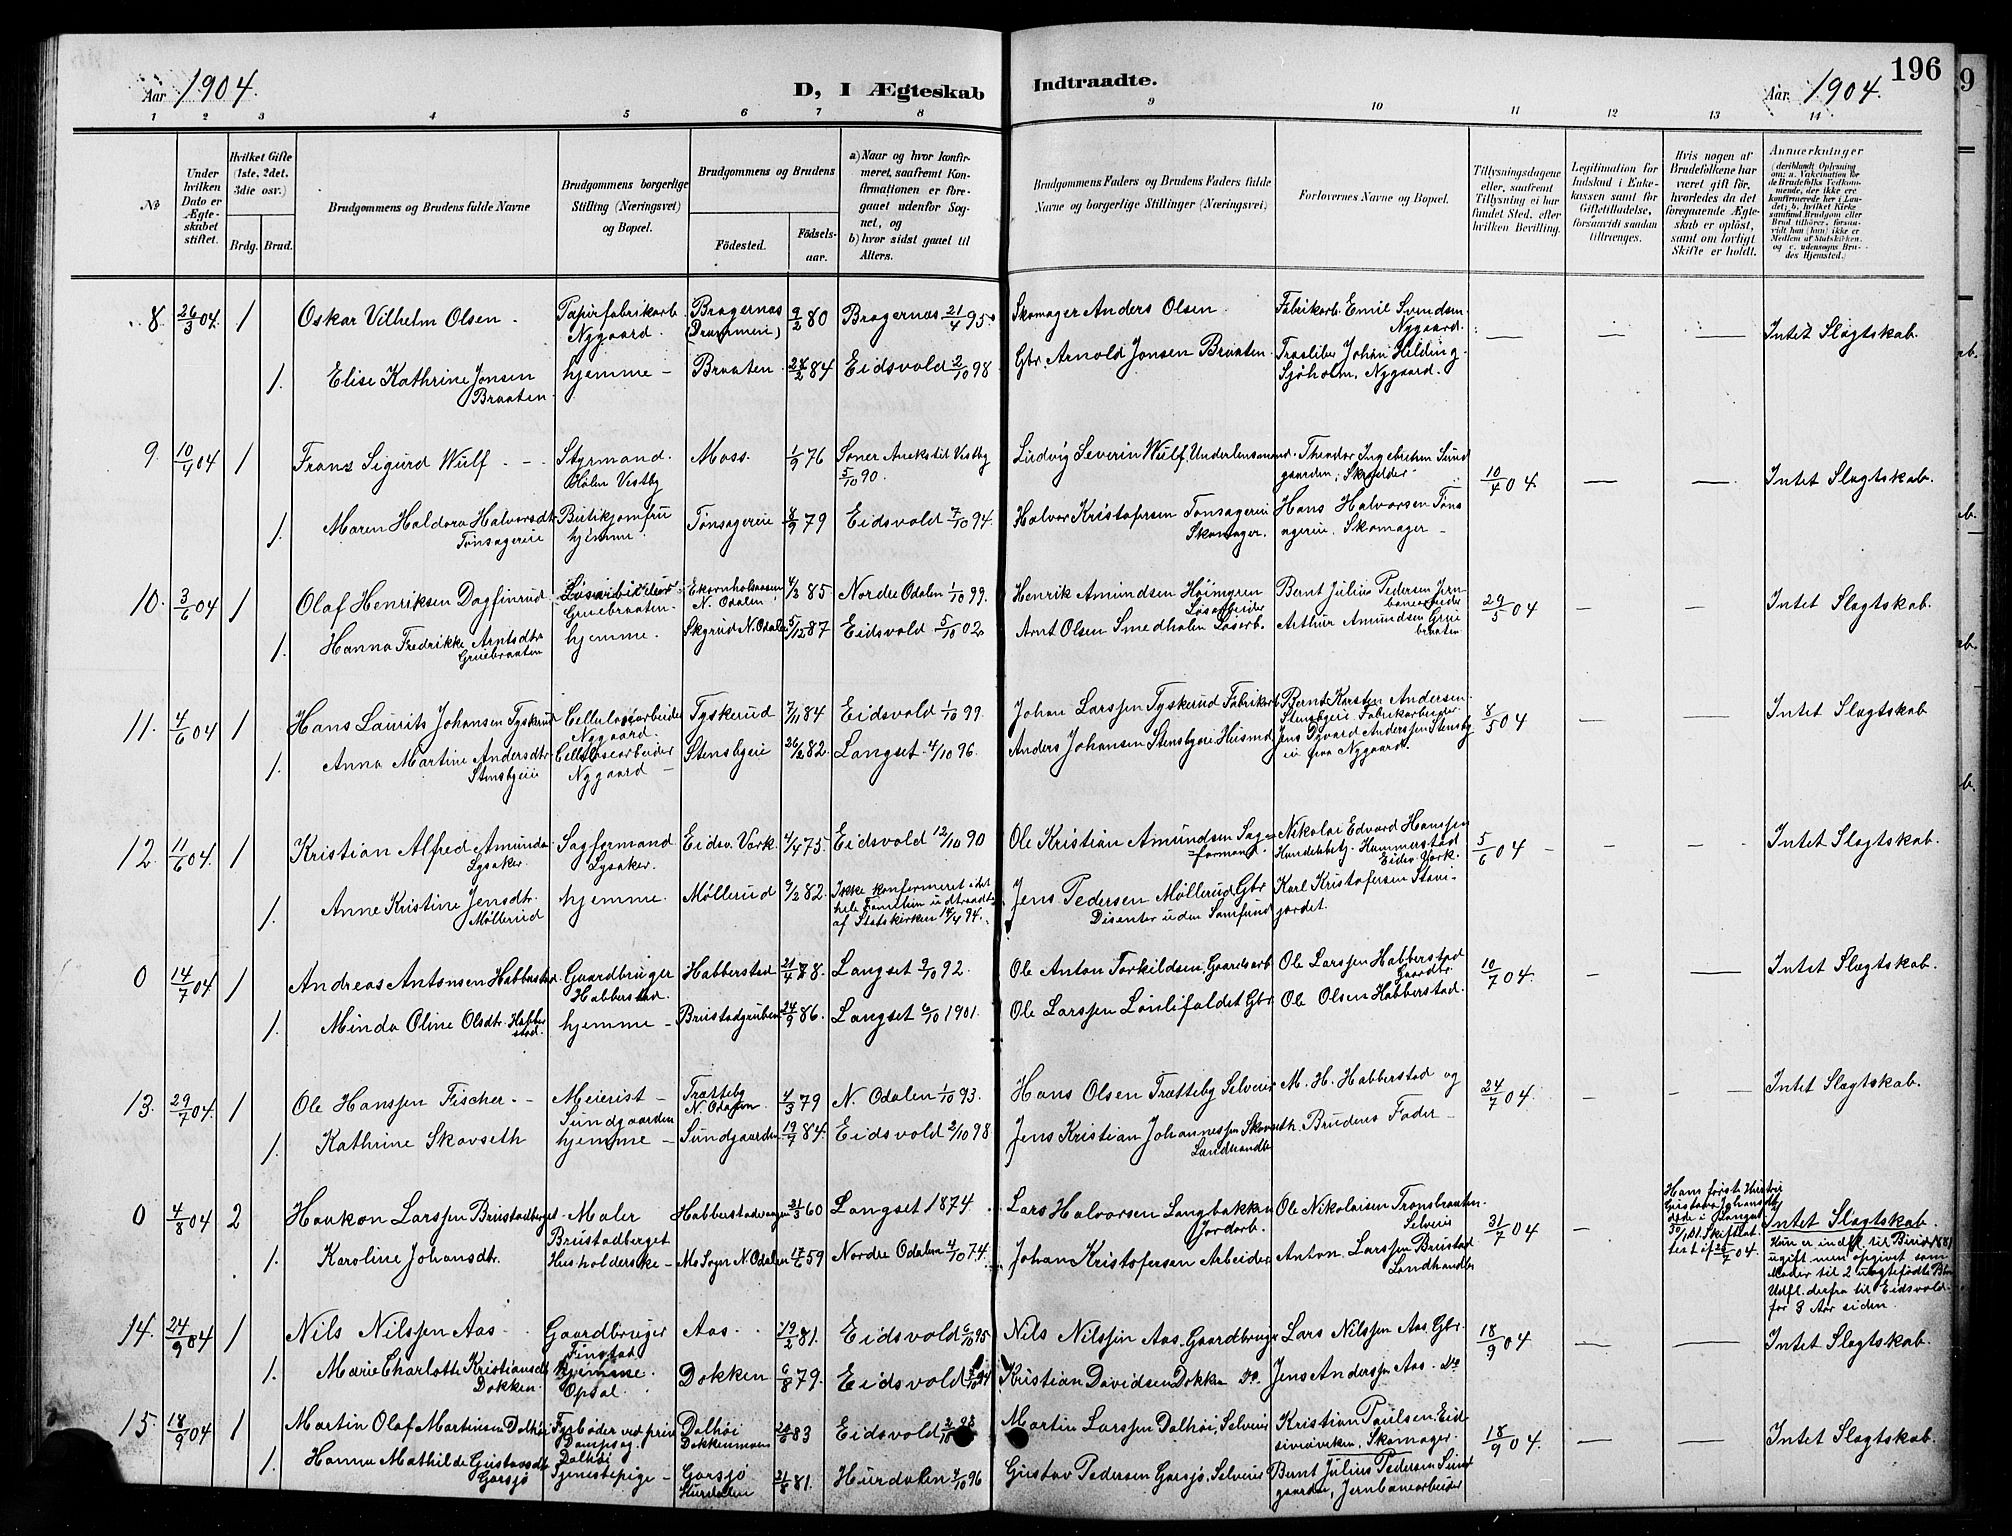 Aar 1904. D, I Ægteskab Indtraadte. Aar 1904. 196
1 2 3 4 5 6 7 8 9 10 11 12 13 14
No
Under hvilken Dato er Ægteskabet stiftet.
Hvilket Gifte (1ste, 2det, 3die osv.)
Brdg. Brud.
Brudgommens og Brudens fulde Navne
Brudgommens borgerlige Stilling (Næringsvei) og Bopæl.
Brudgommens og Brudens
Fødested. Fødselsaar.
a) Naar og hvor konfirmeret, saafremt Konfirmationen er foregaaet udenfor Sognet, og
b) hvor sidst gaaet til Alters.
Brudgommens Faders og Brudens Faders fulde Navne og borgerlige Stillinger (Næringsvei)
Forlovernes Navne og Bopæl.
Tillysningsdagene eller, saafremt Tillysning ei har fundet Sted, efter hvilken Bevilling.
Legitimation for Indskud i Enkekassen samt for Giftetilladelse, forsaavidt saadan tiltrænges.
Hvis nogen af Brudefolkene har været gift før, hvorledes da det foregaaende Ægteskab er opløst, samt om lovligt Skifte er holdt.
Anmærkninger
(deriblandt Oplysning om: a. Vakcination for de Brudefolks Vedkommende, der ikke ere konfirmerede her i Landet; b. hvilket Kirkesamfund Brudgom eller Brud tilhører, forsaavidt han (hun) ikke er Medlem af Statskirken, og c. udensogns Brudes Hjemsted.)
8. 26/3 04. 1 Oskar Vilhelm Olsen. Papirfabrikarb. Nygaard. Bragernæs (Drammen) 9/2 80 Bragernæs 21/4 95. Skomager Anders Olsen. Fabrikarb. Emil Svendsen Nygaard. Intet Slægtskab.
1. Elise Kathrine Jonsen Braaten hjemme Braaten 24/2 84 Eidsvold 2/10 98 Gbr. Arnold Jonsen Braaten. Træsliber Johan Hilding Sjöholm, Nygaard.
9. 10/4 04 1 Frans Sigurd Wulf Styrmand. Hølen Vestby Moss. 1/9 76 Soner Anekstil Vestby 5/10 90. Ludvig Severin Wulf. Theodor Ingebretsen Sundgaarden, Skrædder 10/4 04. Intet Slægtskab.
1. Maren Haldora Halvorsdtr. Tønsagereie Butikjomfru hjemme. Tønsagereie 8/9 79 Eidsvold 7/10 94. Halvor Kristofersen Tønsagereie Skomager. Hans Halvorsen Tønsagereie. Skomager
10. 3/6 04 1 Olaf Henriksen Dagfinrud Løsarbeider Gruebraaten. Ekornholaasen N. Odalen 4/3 85 Nordre Odalen 1/10 99. Henrik Amundsen Høimyren Løsarbeider Bernt Julius Pedersen Jernbanearbeider 29/5 04 Intet Slægtskab.
1. Hanna Fredrikke Arntsdtr. Gruebraaten hjemme. Skyrud N. Odalen 5/12 87 Eidsvold 5/10 02 Arnt Olsen Smedholen Løsarb. Arthur Amundsen Gruebraaten
11. 4/6 04 1 Hans Laurits Johansen Tyskerud Cellulosearbeider Nygaard Tyskerud 7/11 84 Eidsvold 1/10 99. Johan Larssen Tyskerud Fabrikarb. Bernt Karsten Andersen Stensbyeie Fabrikarbeider 8/5 04 Intet Slægtskab
1. Anna Martine Andersdtr. Stensbyeie Cellulosearbeider Nygaard Stensbyeie 26/12 82. Langset 4/10 96. Anders Johansen Stensbyeie Husmd. Andersen Stensbyeie fra Nygaard.
12. 11/6 04. 1 Kristian Alfred Amunds. Lysaker Sagformand Lysaker. Eidsv. Værk. 4/4 75 Eidsvold 12/10 90 Ole Kristian Amundsen Sagformand Nikolai Edvard Hanssen Handelsbetj. Hammerstad Eidsv. Værk. 5/6 04 Intet Slægtskab.
1. Anne Kristine Jensdtr. Møllerud hjemme. Møllerud 9/2 82. Ikke konfirmeret idet hele Familien udtraadte af Statskirken 14/4 94. Jens Pedersen Møllerud Gbr Disenter uden Samfund Karl Kristofersen Stavigardet.
0 14/7 04 1 Andreas Antonsen Habberstad Gaardbruger Habberstad. Habberstad 21/4 78. Langset 9/10 92. Ole Anton Torkildsen, Gaardsarb. Ole Larssen Habberstad Gaardbr. 10/7 04. Intet Slægtskab.
1. Minda Oline Olsdtr. Habberstad. hjemme Brustadgruben 24/9 86. Langset 6/10 1901. Ole Larssen Lønlifaldet Gbr Ole Olsen Habberstad.
13. 29/7 04. 1 Ole Hanssen Fischer. Meierist Sundgaarden Trætteby N. Odalen 4/3 79 N. Odalen 1/10 93. Hans Olsen Trætteby Selveier M. H. Habberstad og 24/7 04. Intet Slægtskab.
1. Kathrine Skavseth hjemme Sundgaarden 19/7 84. Eidsvold 2/10 98 Jens Kristian Johannessen Skavseth. Landhandler Brudens Fader
0 4/8 04 2 Haakon Larssen Brustadberget Maler Brustadberget Habberstadvangen 21/3 60 Langset 1874. Lars Halvorsen Langbakken Jordarb. Ole Nikolaisen Trønsbraaten. Selveier 31/7 04 Hans første Hustru Gustava Johansdtr. døde i Langset 30/1 01. Skifteattest af 25/7 04. Intet Slægtskab.
1. Karoline Johansdtr. Husholderske Mo Sogn N. Odalen 17/6 59 Nordre Odalen 4/10 74. Johan Kristofersen Arbeider Anton Larssen Brustad Landhandler Hun er indfl. til Birid 1881 ugift men opgivet som Moder til 2 uægtefødte Børn Udfl. derfra til Eidsvold for 3 Aar siden.
14. 24/9 04 1 Nils Nilssen Aas. Gaardbruger Finstad Aas 19/2 81. Eidsvold 6/10 95 Nils Nilssen Aas. Gaardbruger Lars Nilssen Aas, Gbr. 18/9 04 Intet Slægtskab.
1. Marie Charlotte Kristiansdtr. Dokken. hjemme. Opsal. Dokken 6/8 79. Eidsvold Kristian Davidsen Dokken Do. Jens Anderssen Aas. Do
15. 18/9 04 1 Martin Olaf Martinsen Dalhøi Fyrbøder ved Dampsag. Dalhøi Dalhøi 20/6 83 Eidsvold Martin Larssen Dalhøi, Selveier Kristian Paulsen, Skomager. 18/9 04. Intet Slægtskab.
1. Hanna Mathilde Gustavsdtr. Garsjø Tjenestepige Garsjø Hurdalen 21/8 81. Hurdalen 4/10 96 Gustav Pedersen Garsjø, Selveier Bernt Julius Pedersen Sundgaarden, Jernbanearbeider